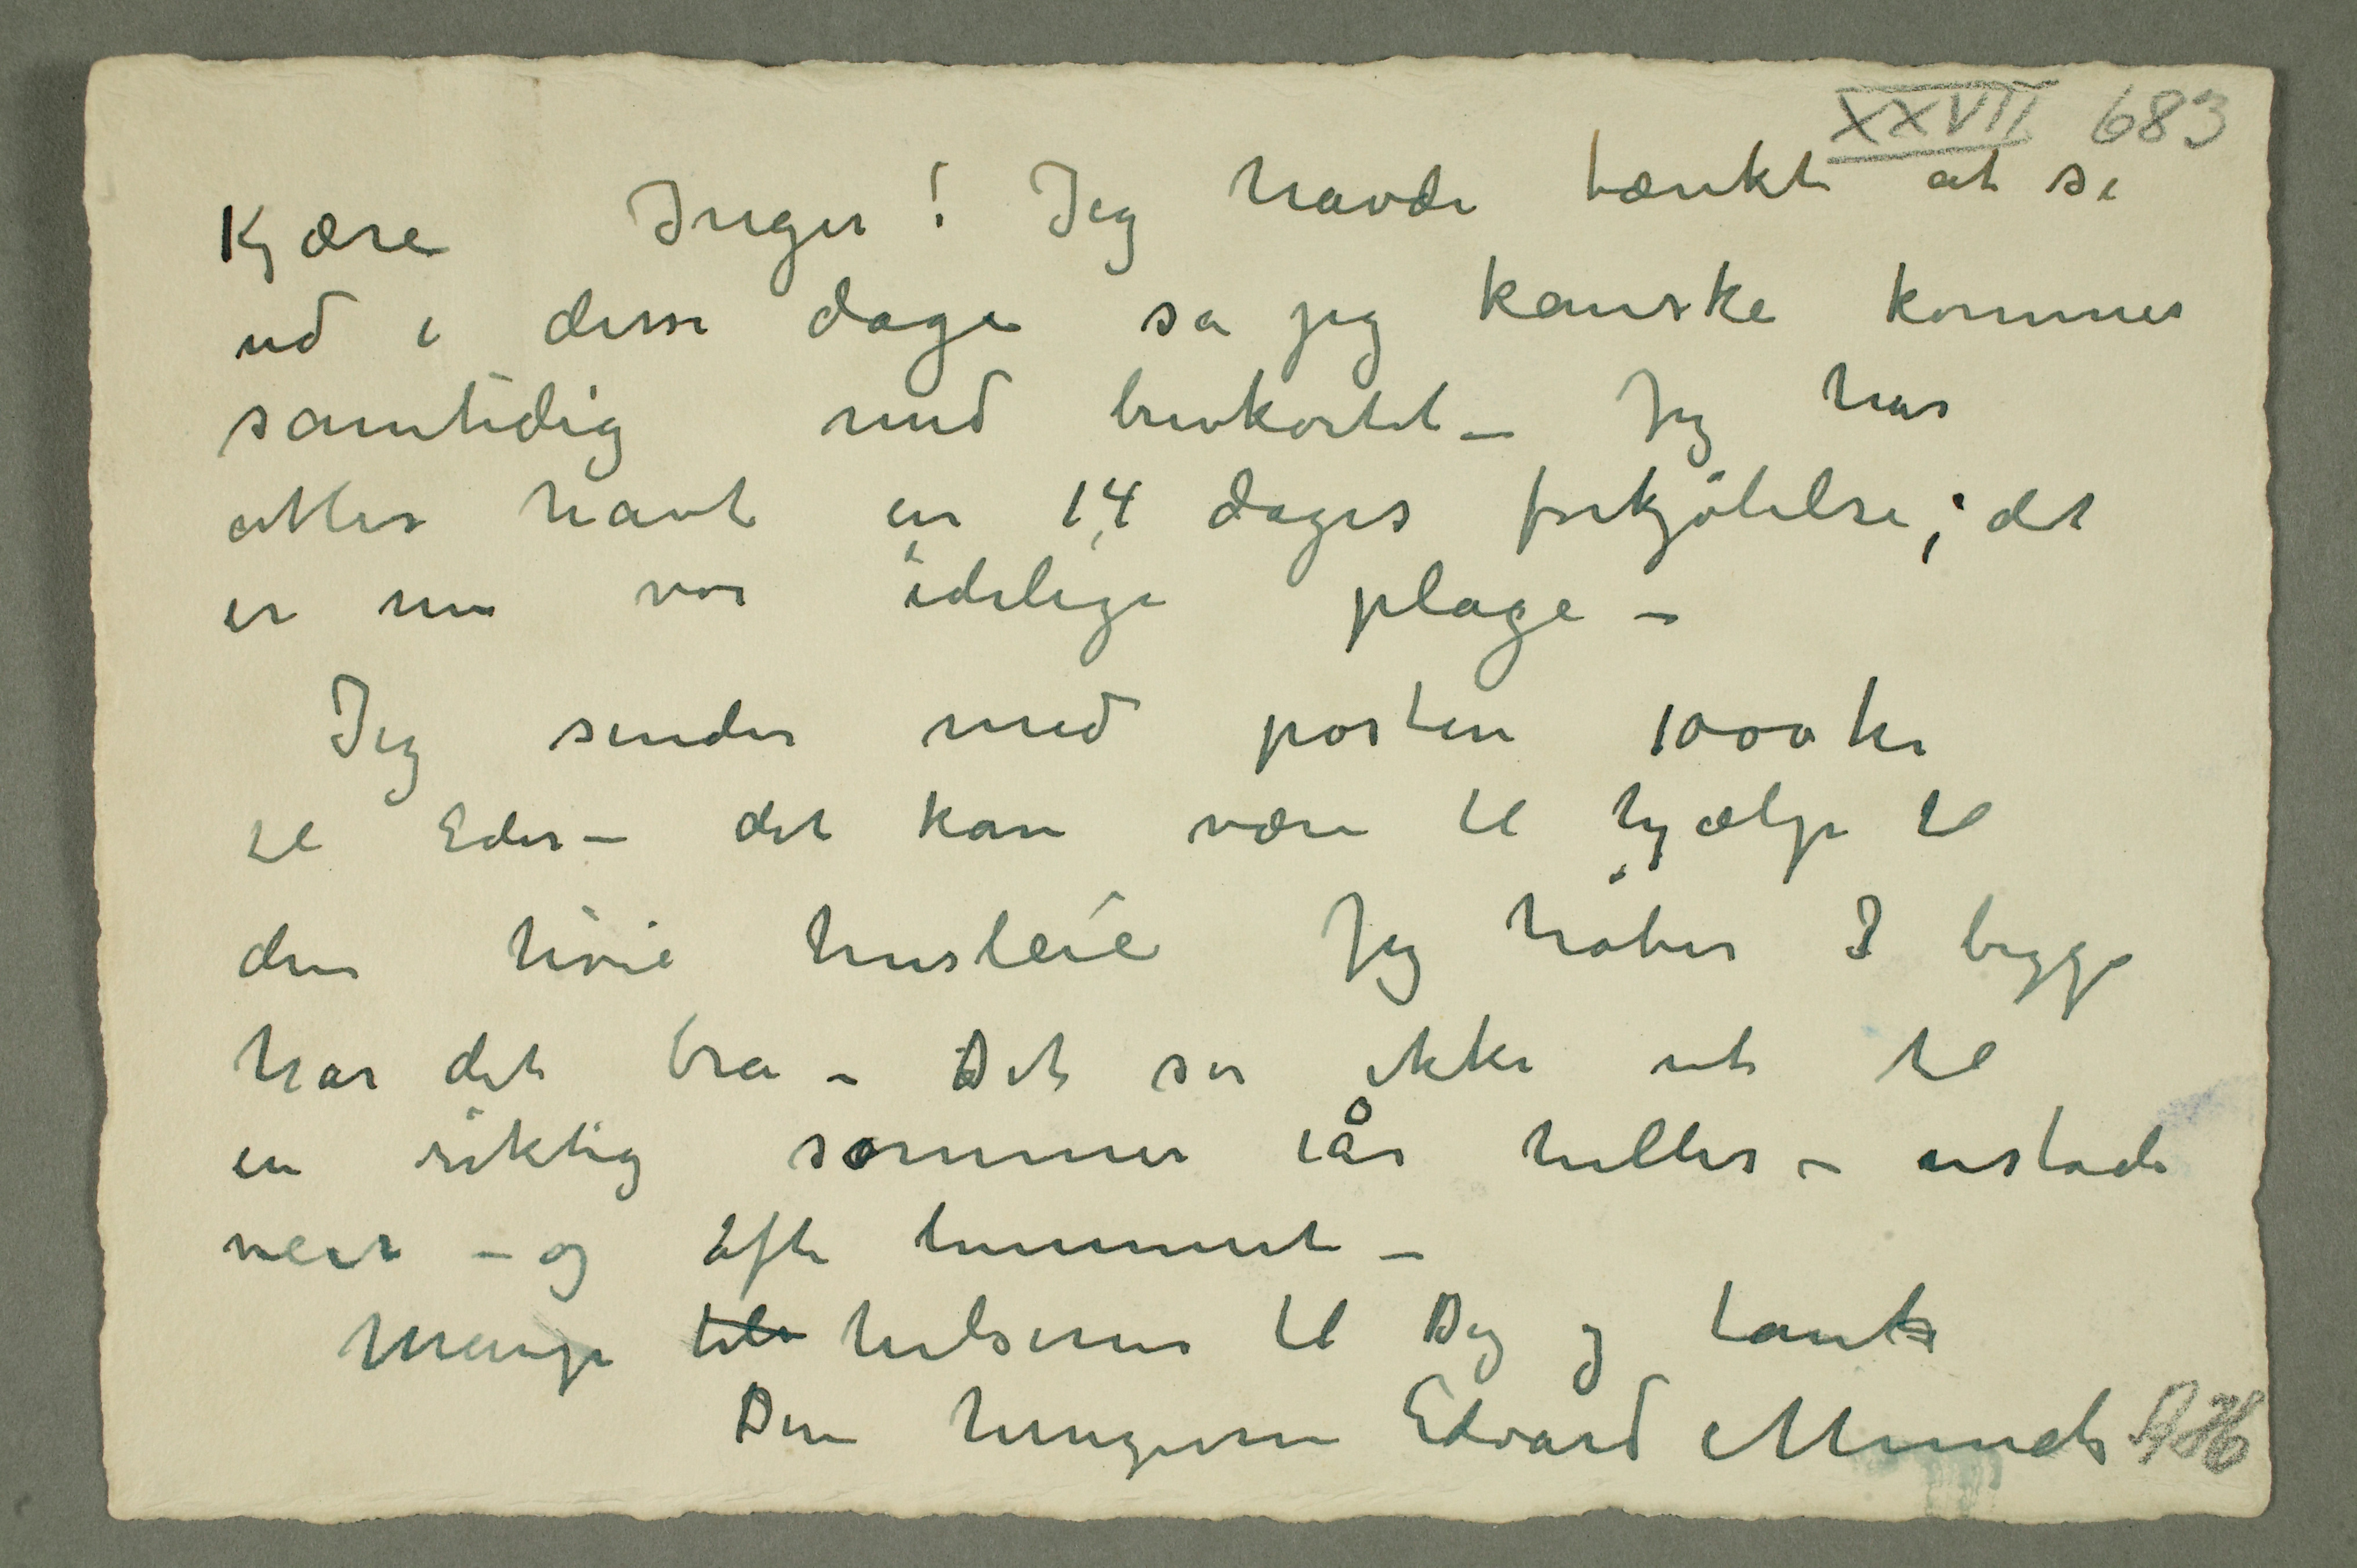 XXVII 683
Kjære Inger! Jeg havde tænkt at se
ud i disse dage så jeg kanske kommer
samtidig med brevkortet – Jeg har
atter havt en 14 dages forkjølelse; det
er nu vor idelige plage –
Jeg sender med posten 1000 kr
til Eder – det kan være til hjælp til
den høie husleie Jeg håber I begge
har det bra – Det ser ikke ut til
en riktig sommer iår heller – ustadi
veir – og ofte lummert –
Mange hilsener til Dig og tante
Din hengivne Edvard Munch